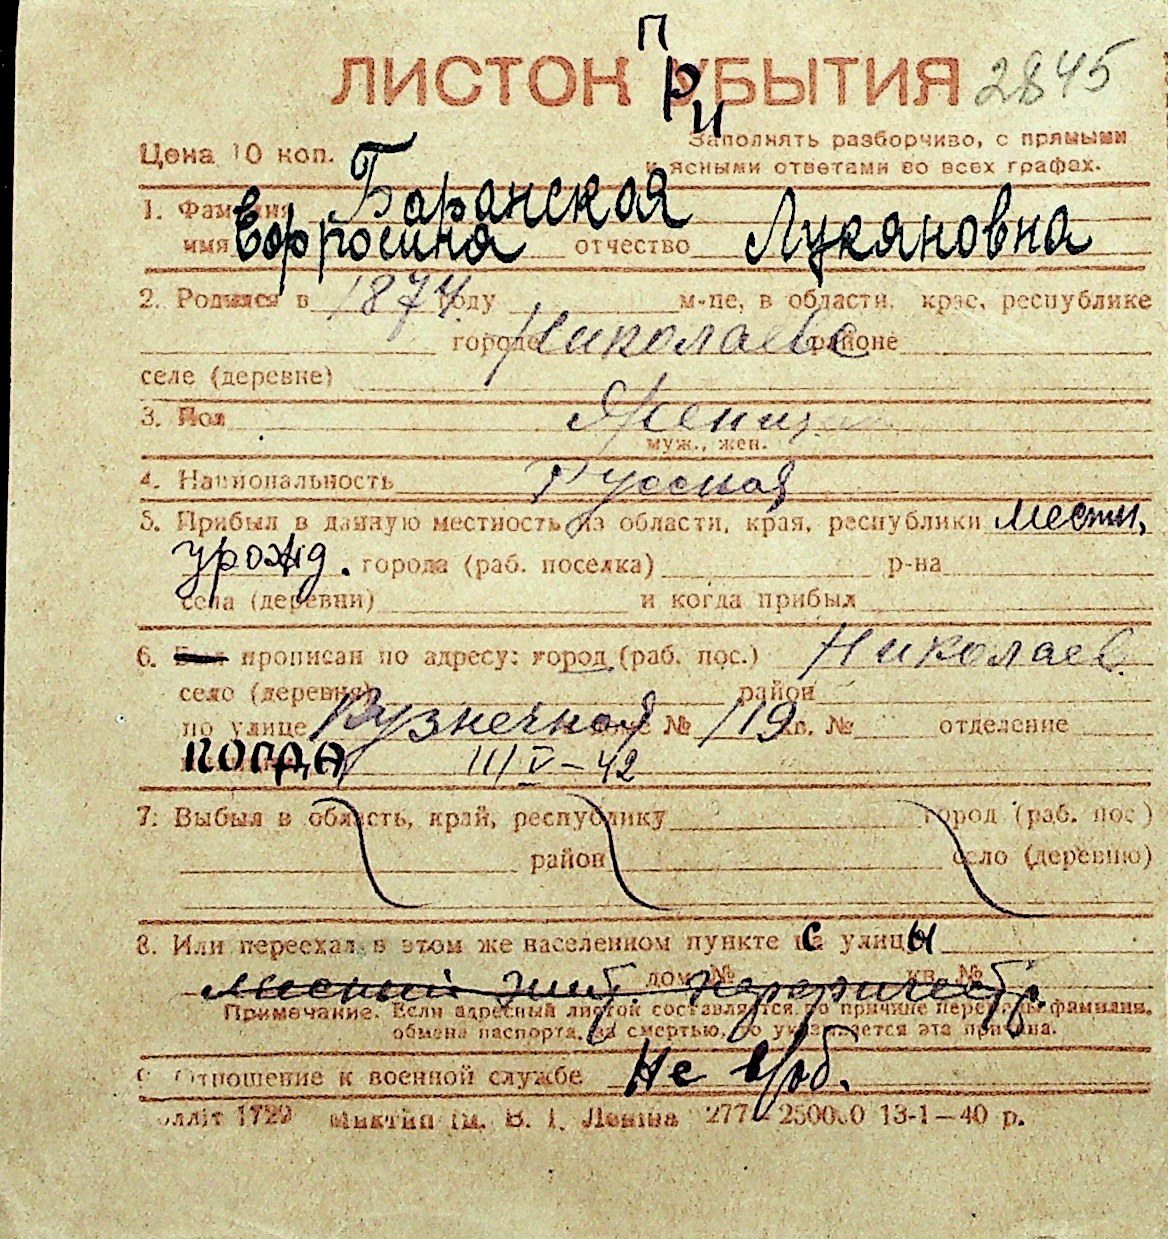 ЛИСТОК ПРИБЫТИЯ 2845
Цена 10 коп.
Заполнять разборчиво, с прямыми
и ясными ответами во всех графах.
1. Фамилия Баранская
имя Ефросина отчество Лукяновна
2. Родился в 1874 году м-це, в области, крае, республике
городе Николаеве районе
селе (деревне)
3. Пол Женщ
муж., жен.
4. Национальность Русская
5. Прибыл в данную местность из области, края, республики местн.
урожд. города (раб. поселка) р-на
села (деревни) и когда прибыл
6. прописан по адресу: город (раб. пос.) Николаев
село (деревня) район
по улице Кузнечная № 119 кв. № отделение
КОГДА 11/V-42
7. Выбыл в область, край, республику город (раб. пос.)
район село (деревню)
8. Или переехал в этом же населенном пункте с улицы
дом № кв. №
Примечание. Если адресный листок составляется по причине перемены фамилии,
обмена паспорта, за смертью, то указывается эта причина.
9. Отношение к военной службе Не в/об.
1729 ім. В. І. Леніна 277—250000 13-1—40 р.